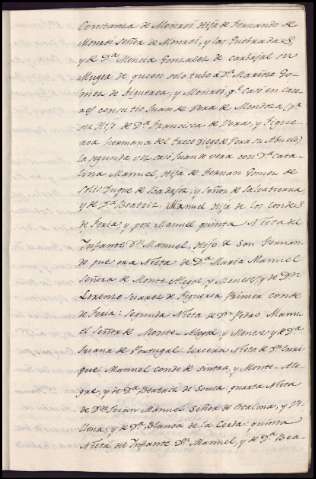 Constanza de Monroi hija de Fernando de
Monroi Señor de Monroi, y las Quebradas
y de Dª Mencia Gonzalez de Carbajal su
Muger de quien solo tubo a Dª Marina Go-
mez de Figueroa, y Monroi que casó en Cace-
res con su tio Juan de Vera de Mendoza,
hijo de Dª Francisca de Vera, y Figue-
roa hermana del Diego de Vera su Abuelo;
la segunda vez casó Juan de Vera con Dª Cata-
lina Manuel, hija de Hernan Gomez de
Solis Duque de Badajoz, y Señor de Salvatierra
y de Dª Beatriz Manuel hija de los Condes
de Feria; y por Manuel quinta Nieta del
Infante Dn Manuel, hijo de San Fernan-
do que era Nieta de Dª Maria Manuel
Señora de Monte Alegre, y Meneses, y de Dn
Lorenzo Suarez de Figueroa Primer Conde
de Feria: Segunda Nieta de Dn Pedro Manu-
el Señor de Monte Alegre, y Meneses y de Dª
Juana de Portugal: tercera Nieta de Dn Enrri-
que Manuel Conde de Sintra, y Monte Ale-
gre, y de Dª Beatriz de Sousa: quarta Nieta
de Dn Juan Manuel Señor de Escalona, y Vi-
llena, y de Dª Blanca de la Cerda: quinta
Nieta del Infante Dn Manuel, y de Dª Bea